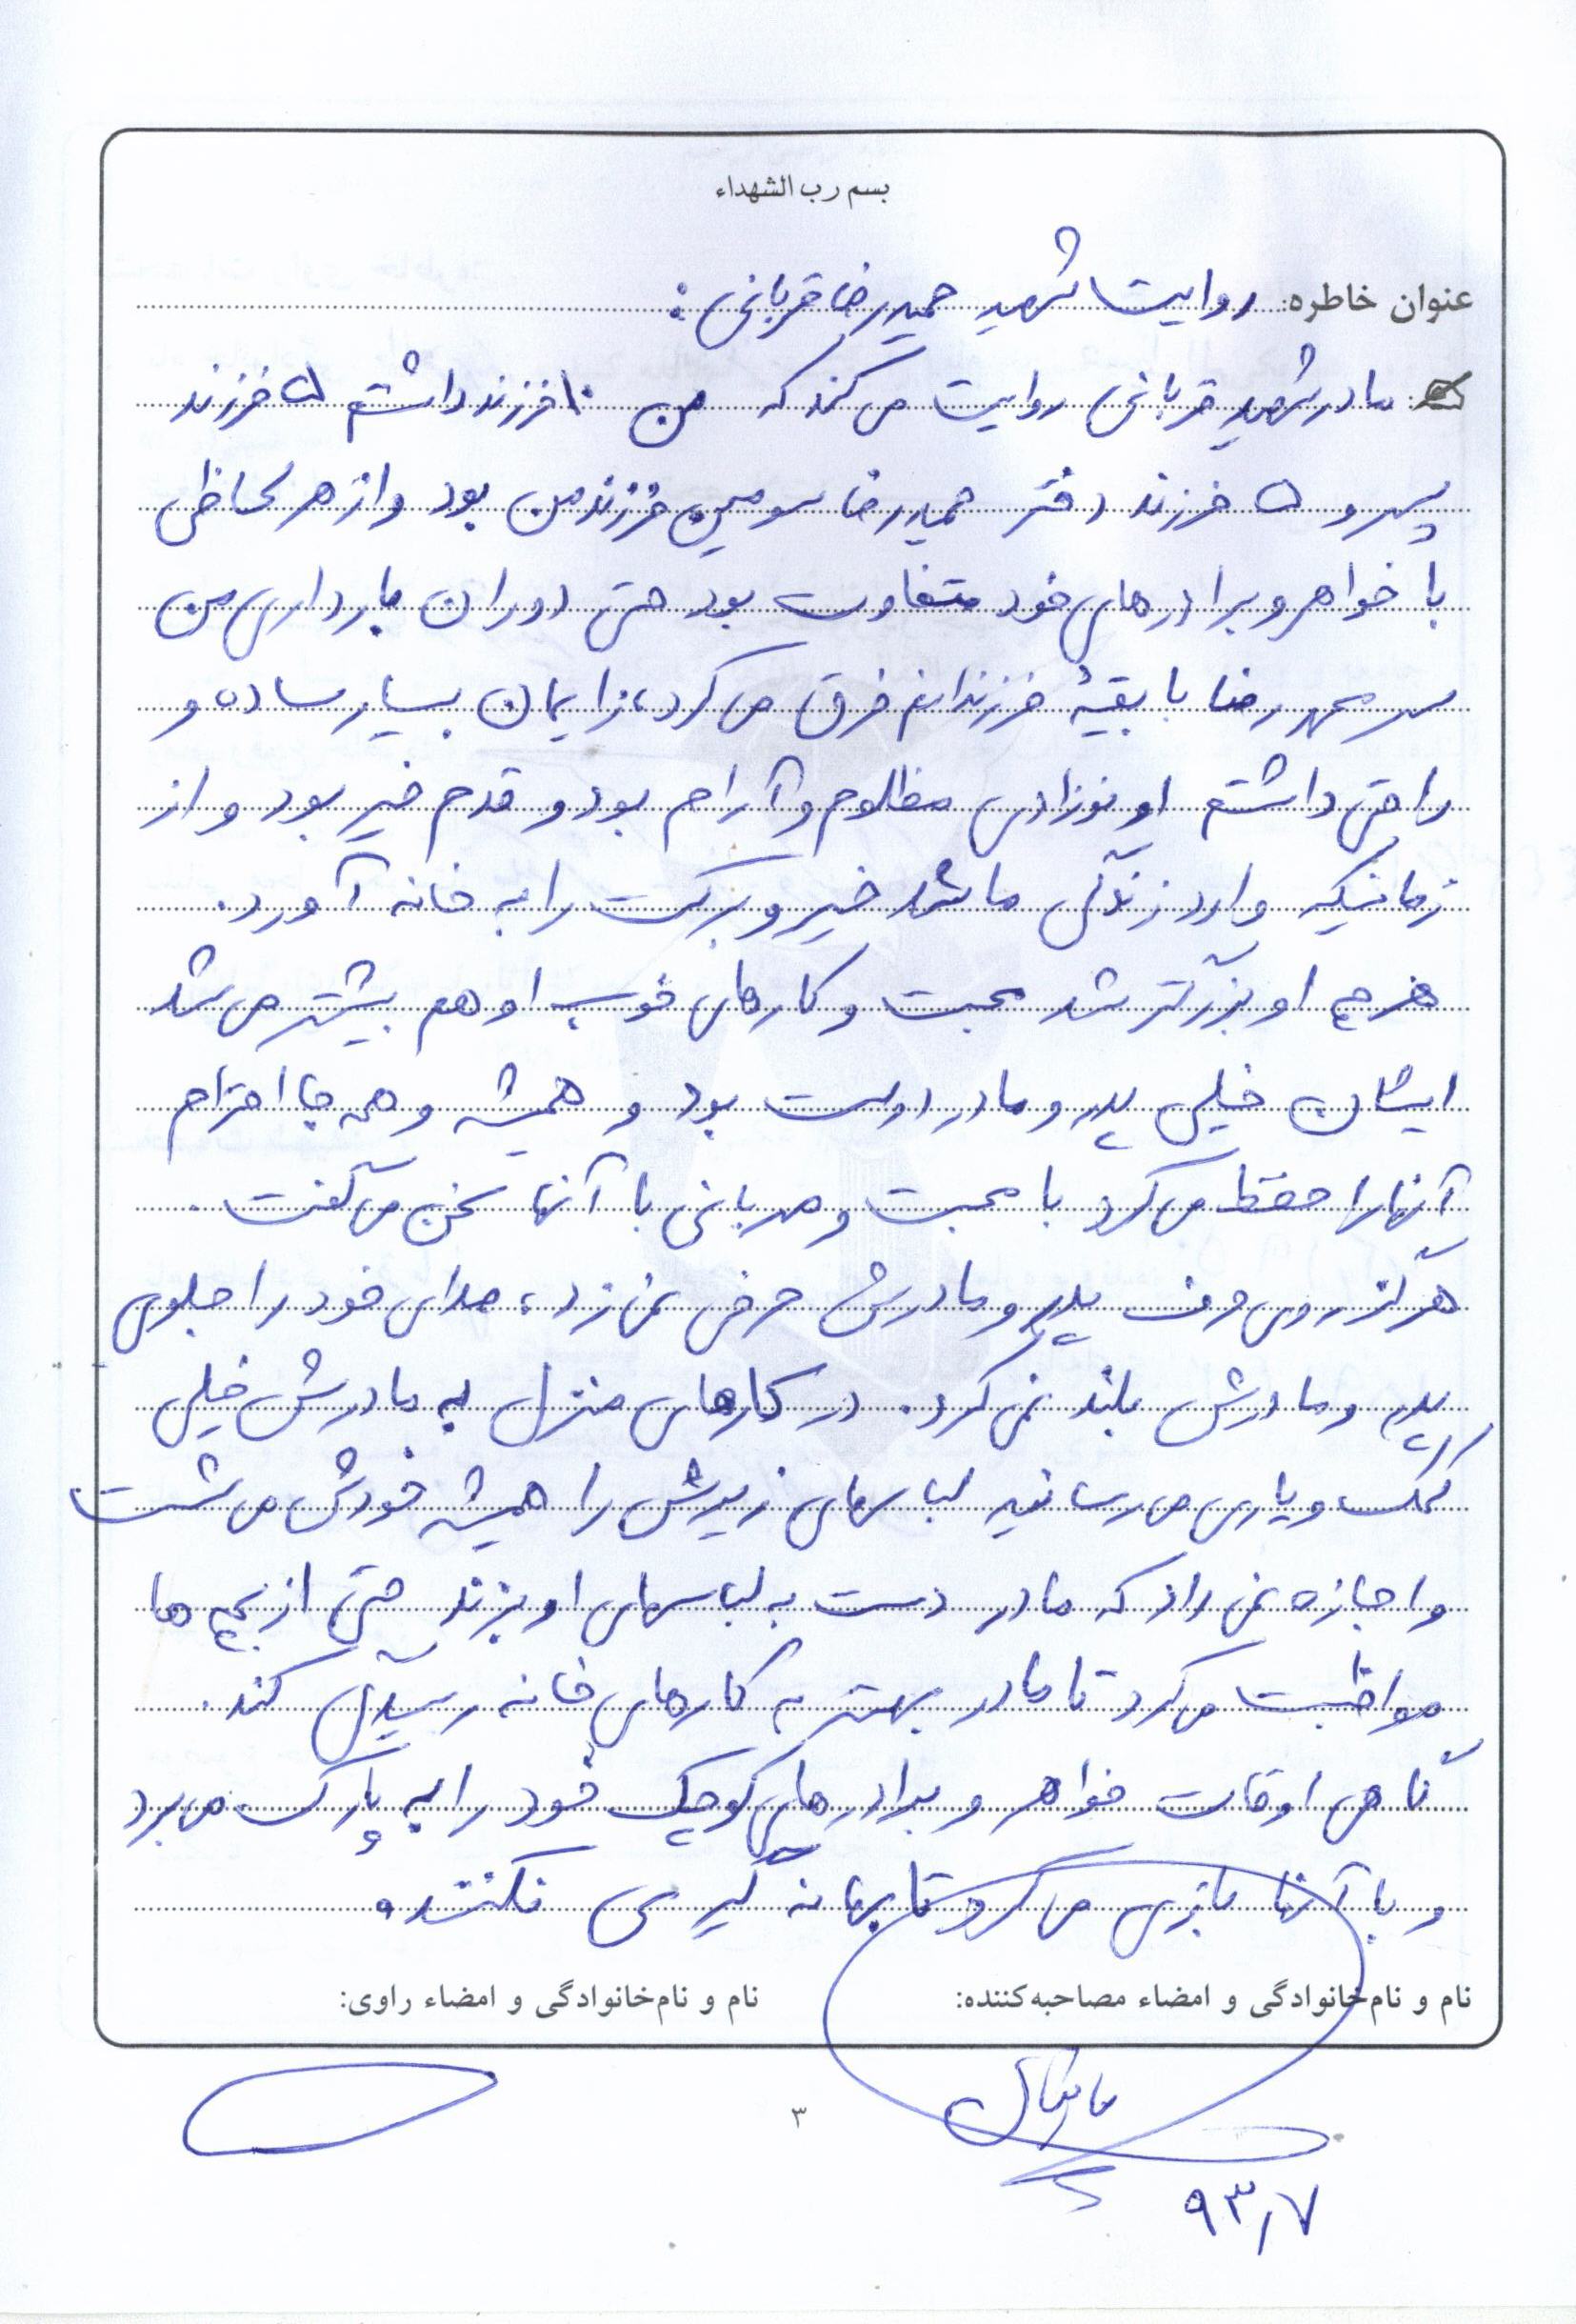 بسم رب الشهداء
عنوان خاطره: روایت شهید حمیدرضا قربانی:
مادر شهید قربانی روایت می کند که من ۱۰ فرزند داشتم ۵ فرزند
پسر و ۵ فرزند دختر حمیدرضا سومین فرزند من بود و از هر لحاظی
با خواهر و برادرهای خود متفاوت بود حتی دوران بارداری من
سر محمدرضا با بقیۀ فرزندانم فرق می کرد، زایمان بسیار ساده و
راحتی داشتم او نوزادی مظلوم و آرام بود و قدم خیر بود و از
زمانیکه وارد زندگی ما شد خیر و برکت را به خانه آورد.
هرچه او بزرگتر شد محبت و کارهای خوب او هم بیشتر می شد
ایشان خیلی پدر و مادر دوست بود و همیشه و همه جا احترام
آنها را حفظ می کرد با محبت و مهربانی با آنها سخن می گفت.
هرگز روی حرف پدر و مادرش حرفی نمی زد، صدای خود را جلوی
پدر و مادرش بلند نمی کرد. در کارهای منزل به مادرش خیلی
کمک و یاری می رسانید لباسهای زیرش را همیشه خودش می شست
و اجازه نمی داد که مادر دست به لباسهای او بزند حتی از بچه ها
مواظبت می کرد تا مادر بهتر به کارهای خانه رسیدگی کند.
گاهی اوقات خواهر و برادرهای کوچک خود را به پارک می برد
و با آنها بازی می کرد تا بهانه گیری نکنند.
نام و نام‌خانوادگی و امضاء مصاحبه‌کننده: نام و نام‌خانوادگی و امضاء راوی:
۳
۹۳٫۷